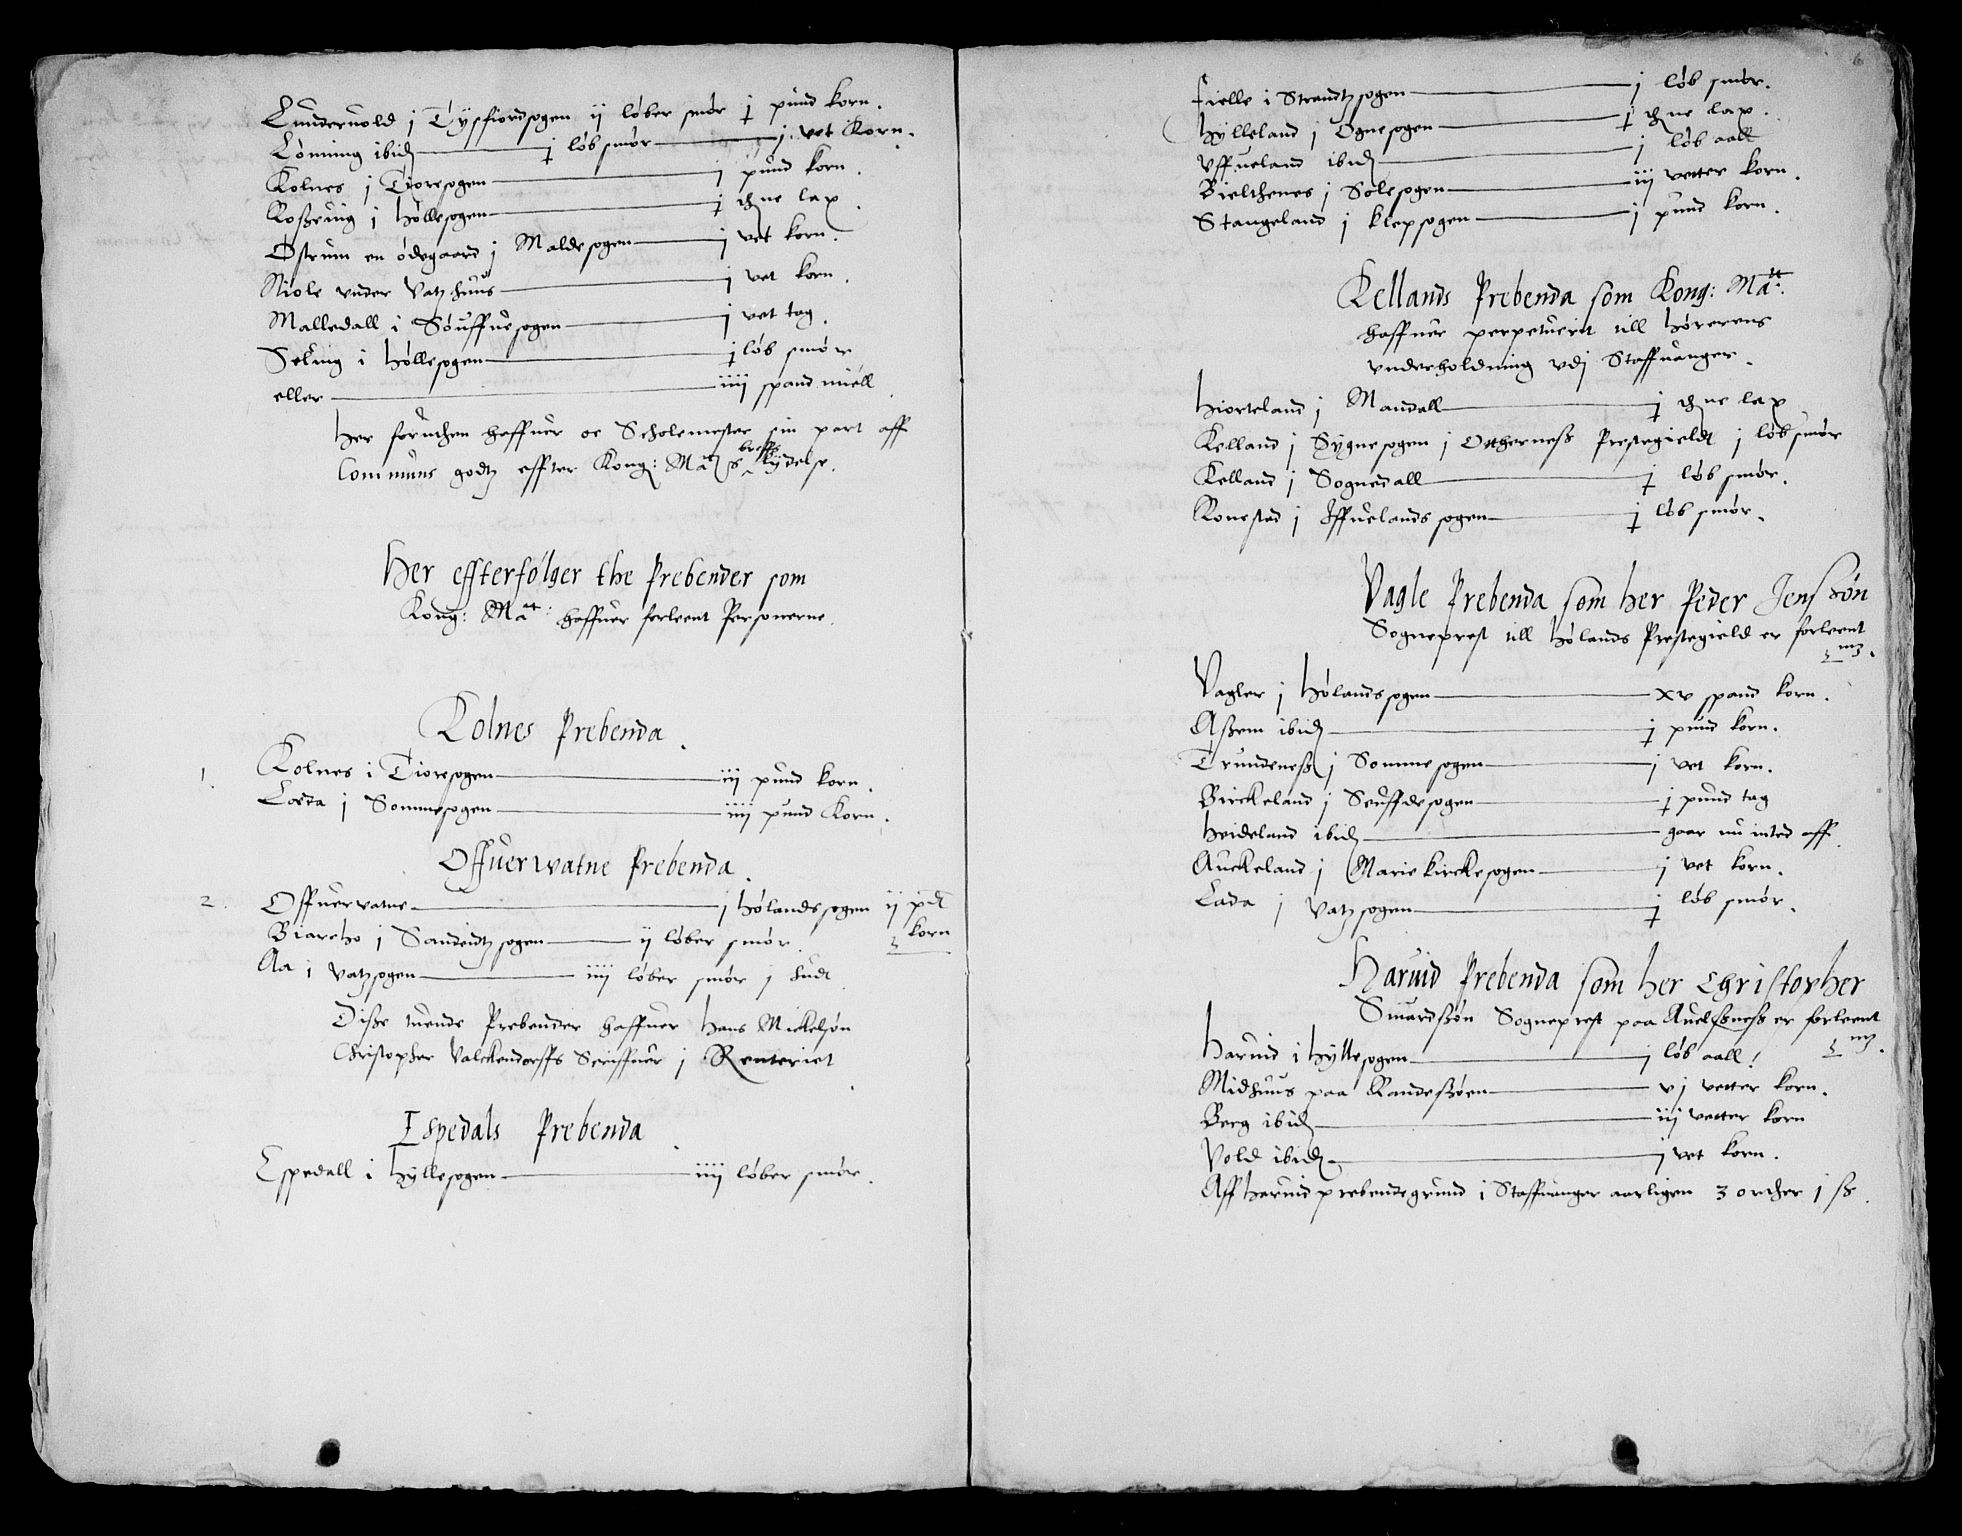 Lundervold j Tysfiordsogen ij løber smør j pund korn.
Lønning ibid j løb smør j vet Korn.
Kolnes j Tioresogen j pund korn.
Roszeuig j Høllesogen j thne lax.
Østrum en ødegaard j Maldesogen j vet korn.
Niole vnder Vatzhuus j vet korn.
Malledall i Søuffuesogen j vet tag.
Seluig i Høllesogen j løb smør
eller iiij spand miell.
Her foruthen haffuer oc Scholemester sin part aff
Communs godtz effter Kong: Matz breffs lydelse.
Her effterfølger the Prebender som
Kong: Matt: haffuer forleent Personerne.
Kolnes Prebenda.
1. Kolnes i Tioresogen iij pund korn.
Loeda j Sommesogen iiij pund Korn.
Offuerwatne Prebenda.
2. Offuervatne j Hølandssogen ij pdt
korn
Biareho j Sandeidtzsogen ij løber smør.
Aa i vatzsogen iiij løber smør j hudt
Disse tuende Prebender haffuer Hans Mickelsøn
Christopher Valckendorffs Scriffuer j Renteriet.
Espedals Prebenda.
Espedall i Hyllesogen iiij løber smør.
6
Fielle i Strandtzsogen j løb smør.
Hylleland j Ognesogen j thne lax.
Vffueland ibid j løb aall
Bielthenes j Solesogen iij vetter korn.
Stangeland j Klepsogen j pund korn.
Kellands Prebenda som Kong: Matt:
haffuer perpetuerit till Hørerens
vnderholdning vdj Staffuanger.
Hiorteland j Mandall j thne lax
Kelland j Sygnesogen j Ottherness Prestegieldt j løb smør
Kelland j Sognedall j løb smør.
Ronestad j Iffuelandssogen j løb smør.
Vagle Prebenda som her Peder Jenssøn
Sogneprest till Hølands Prestegield er forleent
mz.
Vagler j Hølandssogen xv spand korn.
Aszem ibid j pund korn.
Trundeness j Sommesogen j vet korn.
Birckeland j Seuffdesogen j pund tag
Heideland ibid gaar nu inted aff.
Aueckeland j Mariekirckesogen j vet korn.
Lada j vatzsogen j løb smør.
Haruid Prebenda som her Christopher
Siuardssøn Sogneprest paa Auelssness er forleent
mz.
Haruid i Hyllesogen j løb aall!
Midhuus paa Randesøen vj vetter korn.
Berg ibid iij vetter korn
Vold ibid j vet korn.
Aff Haruid prebendegrund i Staffuanger aarligen 3 orther 1 sz.